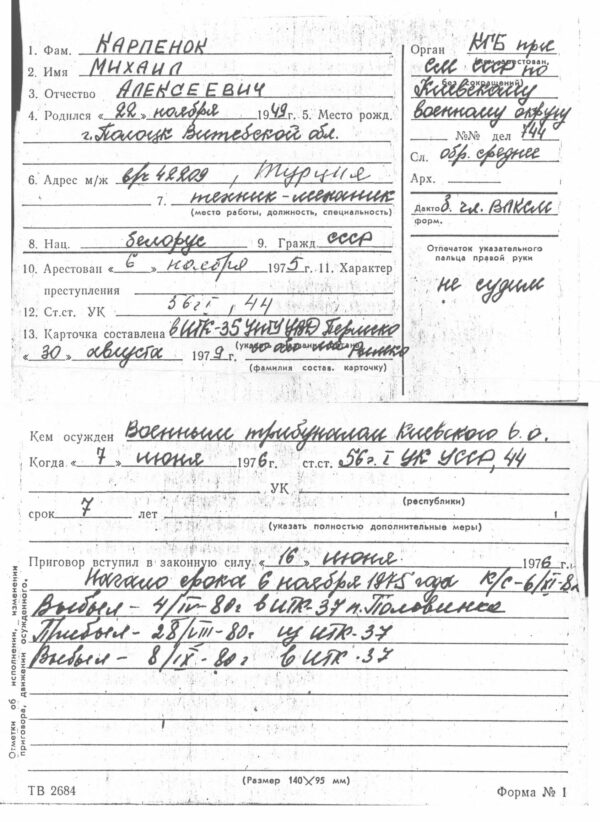 1. Фам. КАРПЕНОК
2. Имя МИХАИЛ
3. Отчество АЛЕКСЕЕВИЧ
4. Родился «22» ноября 1949 г. 5. Место рожд.
г. Полоцк Витебской обл.
6. Адрес м/ж в/ч 42209, Турция
7. техник-механик
(место работы, должность, специальность)
8. Нац. белорус 9. Гражд. СССР
10. Арестован «6» ноября 1975 г. 11. Характер
преступления
12. Ст.ст. УК 56 г. I, 44
13. Карточка составлена в ИТК-35 УИТУ УВД Пермско
«30» августа 1979 г.
(фамилия состав. карточку)
Орган КГБ при
СМ СССР по
без сокращений)
Киевскому
военному округу
№№ дел 744
Сл. обр. среднее
Арх.
Дакто б. чл. ВЛКСМ
форм.
Отпечаток указательного
пальца правой руки
не судим
Кем осужден Военным трибуналом Киевского в.о.
Когда «7» июня 1976 г. ст.ст. 56 ч. I УК УССР, 44
УК
(республики)
срок 7 лет
(указать полностью дополнительные меры)
Приговор вступил в законную силу «16» июня 1976 г.
Начало срока 6 ноября 1975 года к/с-6/XI-82
Выбыл - 4/IV-80г в ИТК-37 п. Половинка
Прибыл - 28/VIII-80г из ИТК-37
Выбыл - 8/IX-80г в ИТК-37
Отметки об исполнении, изменении
приговора, движении осужденного.
(Размер 140×95 мм)
ТВ 2684 Форма № 1